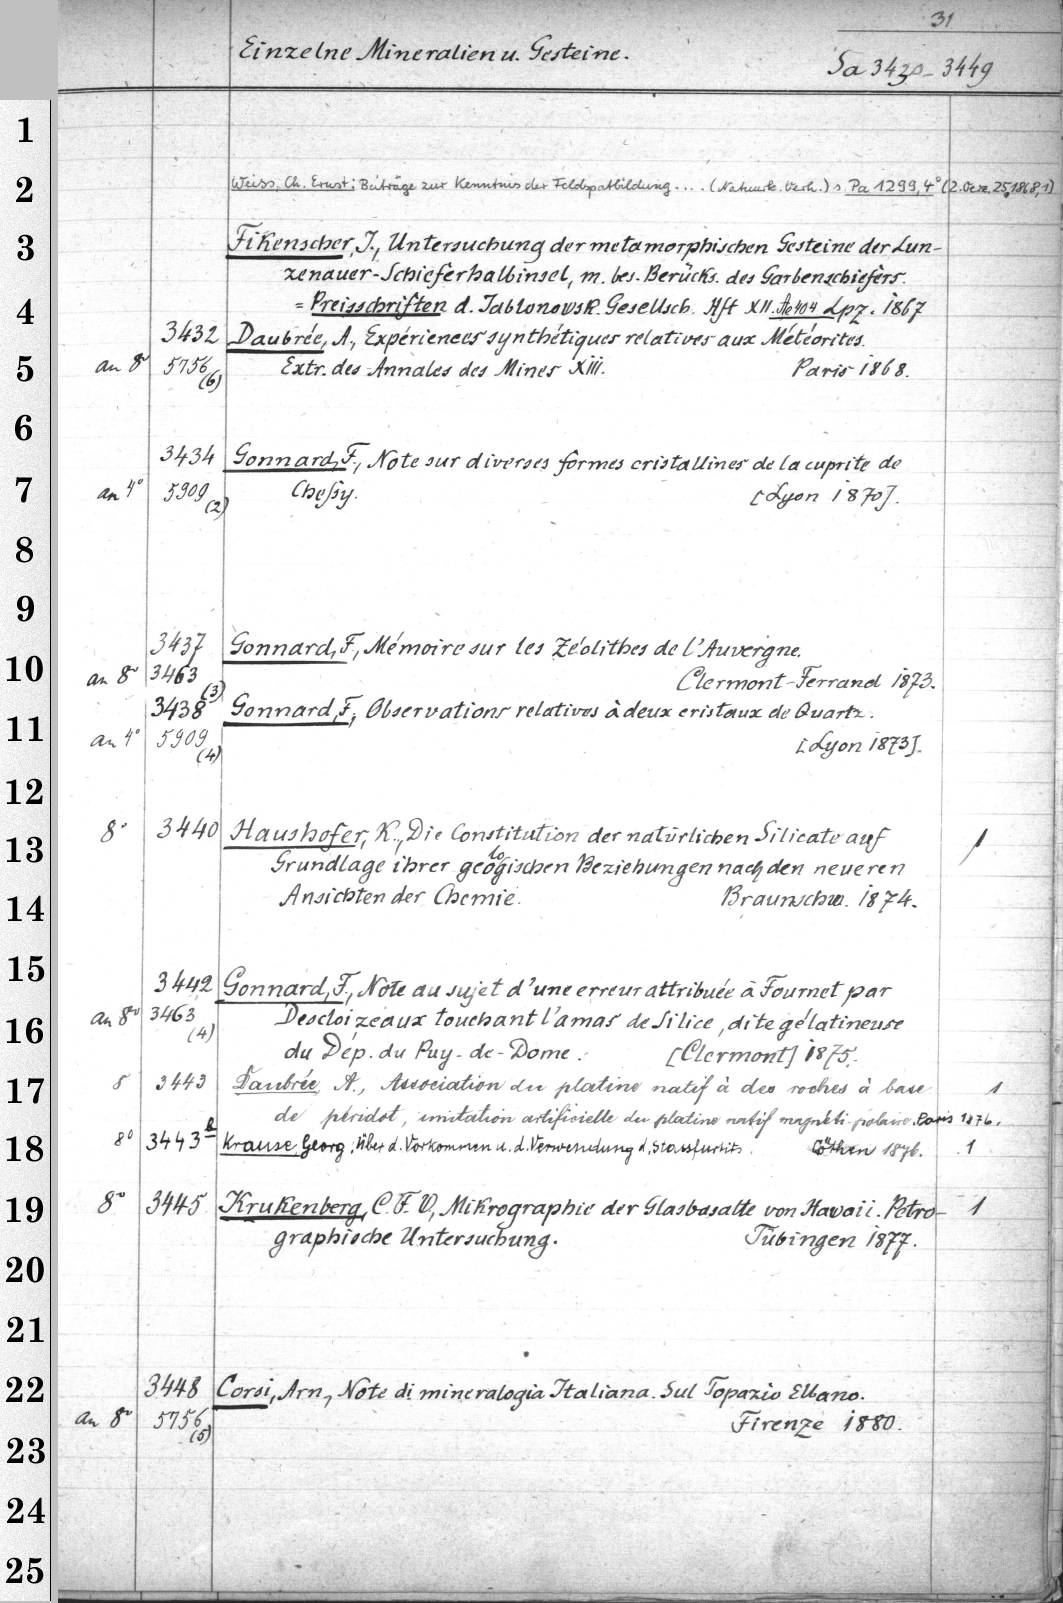 31
Einzelne Mineralien u. Gesteine.
Sa 3430-3449
1
2 Weiss, Ch. Ernst: Beiträge zur Kenntnis der Feldspatbildung.... (Natuurk. Verh.) s. Pa 1299, 4° (2. Verz. 25, 1868, 1)
3 Fikenscher, J., Untersuchung der metamorphischen Gesteine der Lun-
zenauer-Schieferhalbinsel, m. bes. Berücks. des Garbenschiefers.
4 = Preisschriften d. Jablonowsk. Gesellsch. Hft XII. Ae 404 Lpz. 1867
3432 Daubrée, A., Expériences synthétiques relatives aux Météorites.
5 an 8° 5756 (6) Extr. des Annales des Mines XIII. Paris 1868.
6
3434 Gonnard, F., Note sur diverses formes cristallines de la cuprite de
7 an 4° 5909 (2) Chessy. [Lyon 1870].
8
9
3437 Gonnard, F., Mémoire sur les Zéolithes de l'Auvergne.
10 an 8° 3463 (3) Clermont-Ferrand 1873.
3438 Gonnard, F., Observations relatives à deux cristaux de Quartz.
11 an 4° 5909 (4) [Lyon 1873].
12
8° 3440 Haushofer, K., Die Constitution der natürlichen Silicate auf
13 Grundlage ihrer geologischen Beziehungen nach den neueren 1
14 Ansichten der Chemie. Braunschw. 1874.
15
3442 Gonnard, F., Note au sujet d'une erreur attribuée à Fournet par
16 an 8° 3463 (4) Descloizeaux touchant l'amas de Silice, dite gélatineuse
du Dép. du Puy-de-Dome. [Clermont] 1875.
17 8 3443 Daubrée, A., Association du platine natif à des roches à base 1
de péridot, imitation artificielle du platine natif magnéti-polaire. Paris 1876.
18 8° 3443b Krause, Georg: Über d. Vorkommen u. d. Verwendung d. Stassfurtits. Cöthen 1876. 1
19 8° 3445 Krukenberg, C. F. W, Mikrographie der Glasbasalte von Hawaii. Petro- 1
graphische Untersuchung. Tübingen 1877.
20
21
22 3448 Corsi, Arn, Note di mineralogia Italiana. Sul Topazio Elbano.
an 8° 5756 (5) Firenze 1880.
23
24
25